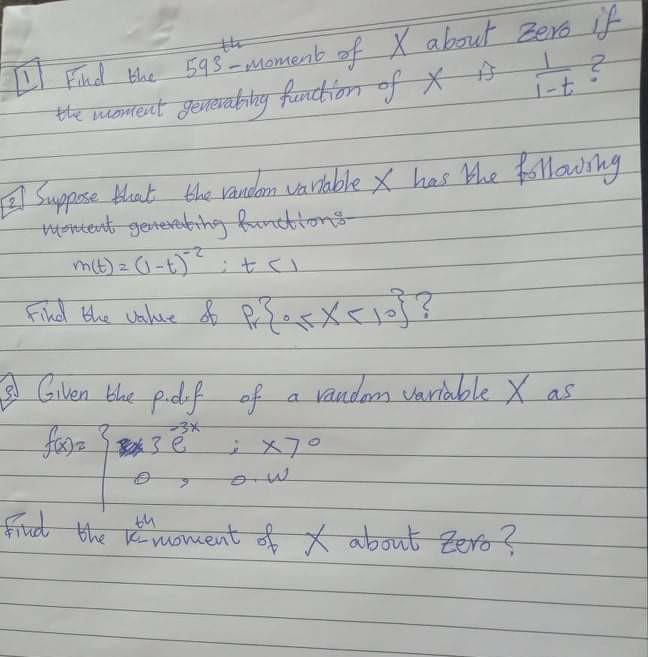 1 Find the 593th-moment of X about zero if
the moment generating function of X is 1/1-t ?
2 Suppose that the random variable X has the following
moment generating function:-
m(t) = (1-t)^-2 ; t < 1
Find the value of Pr{0<X<10}?
3 Given the p.d.f of a random variable X as
f(x) = { 3 e^-3x ; x>0
0 , o.w
Find the kth-moment of X about zero?